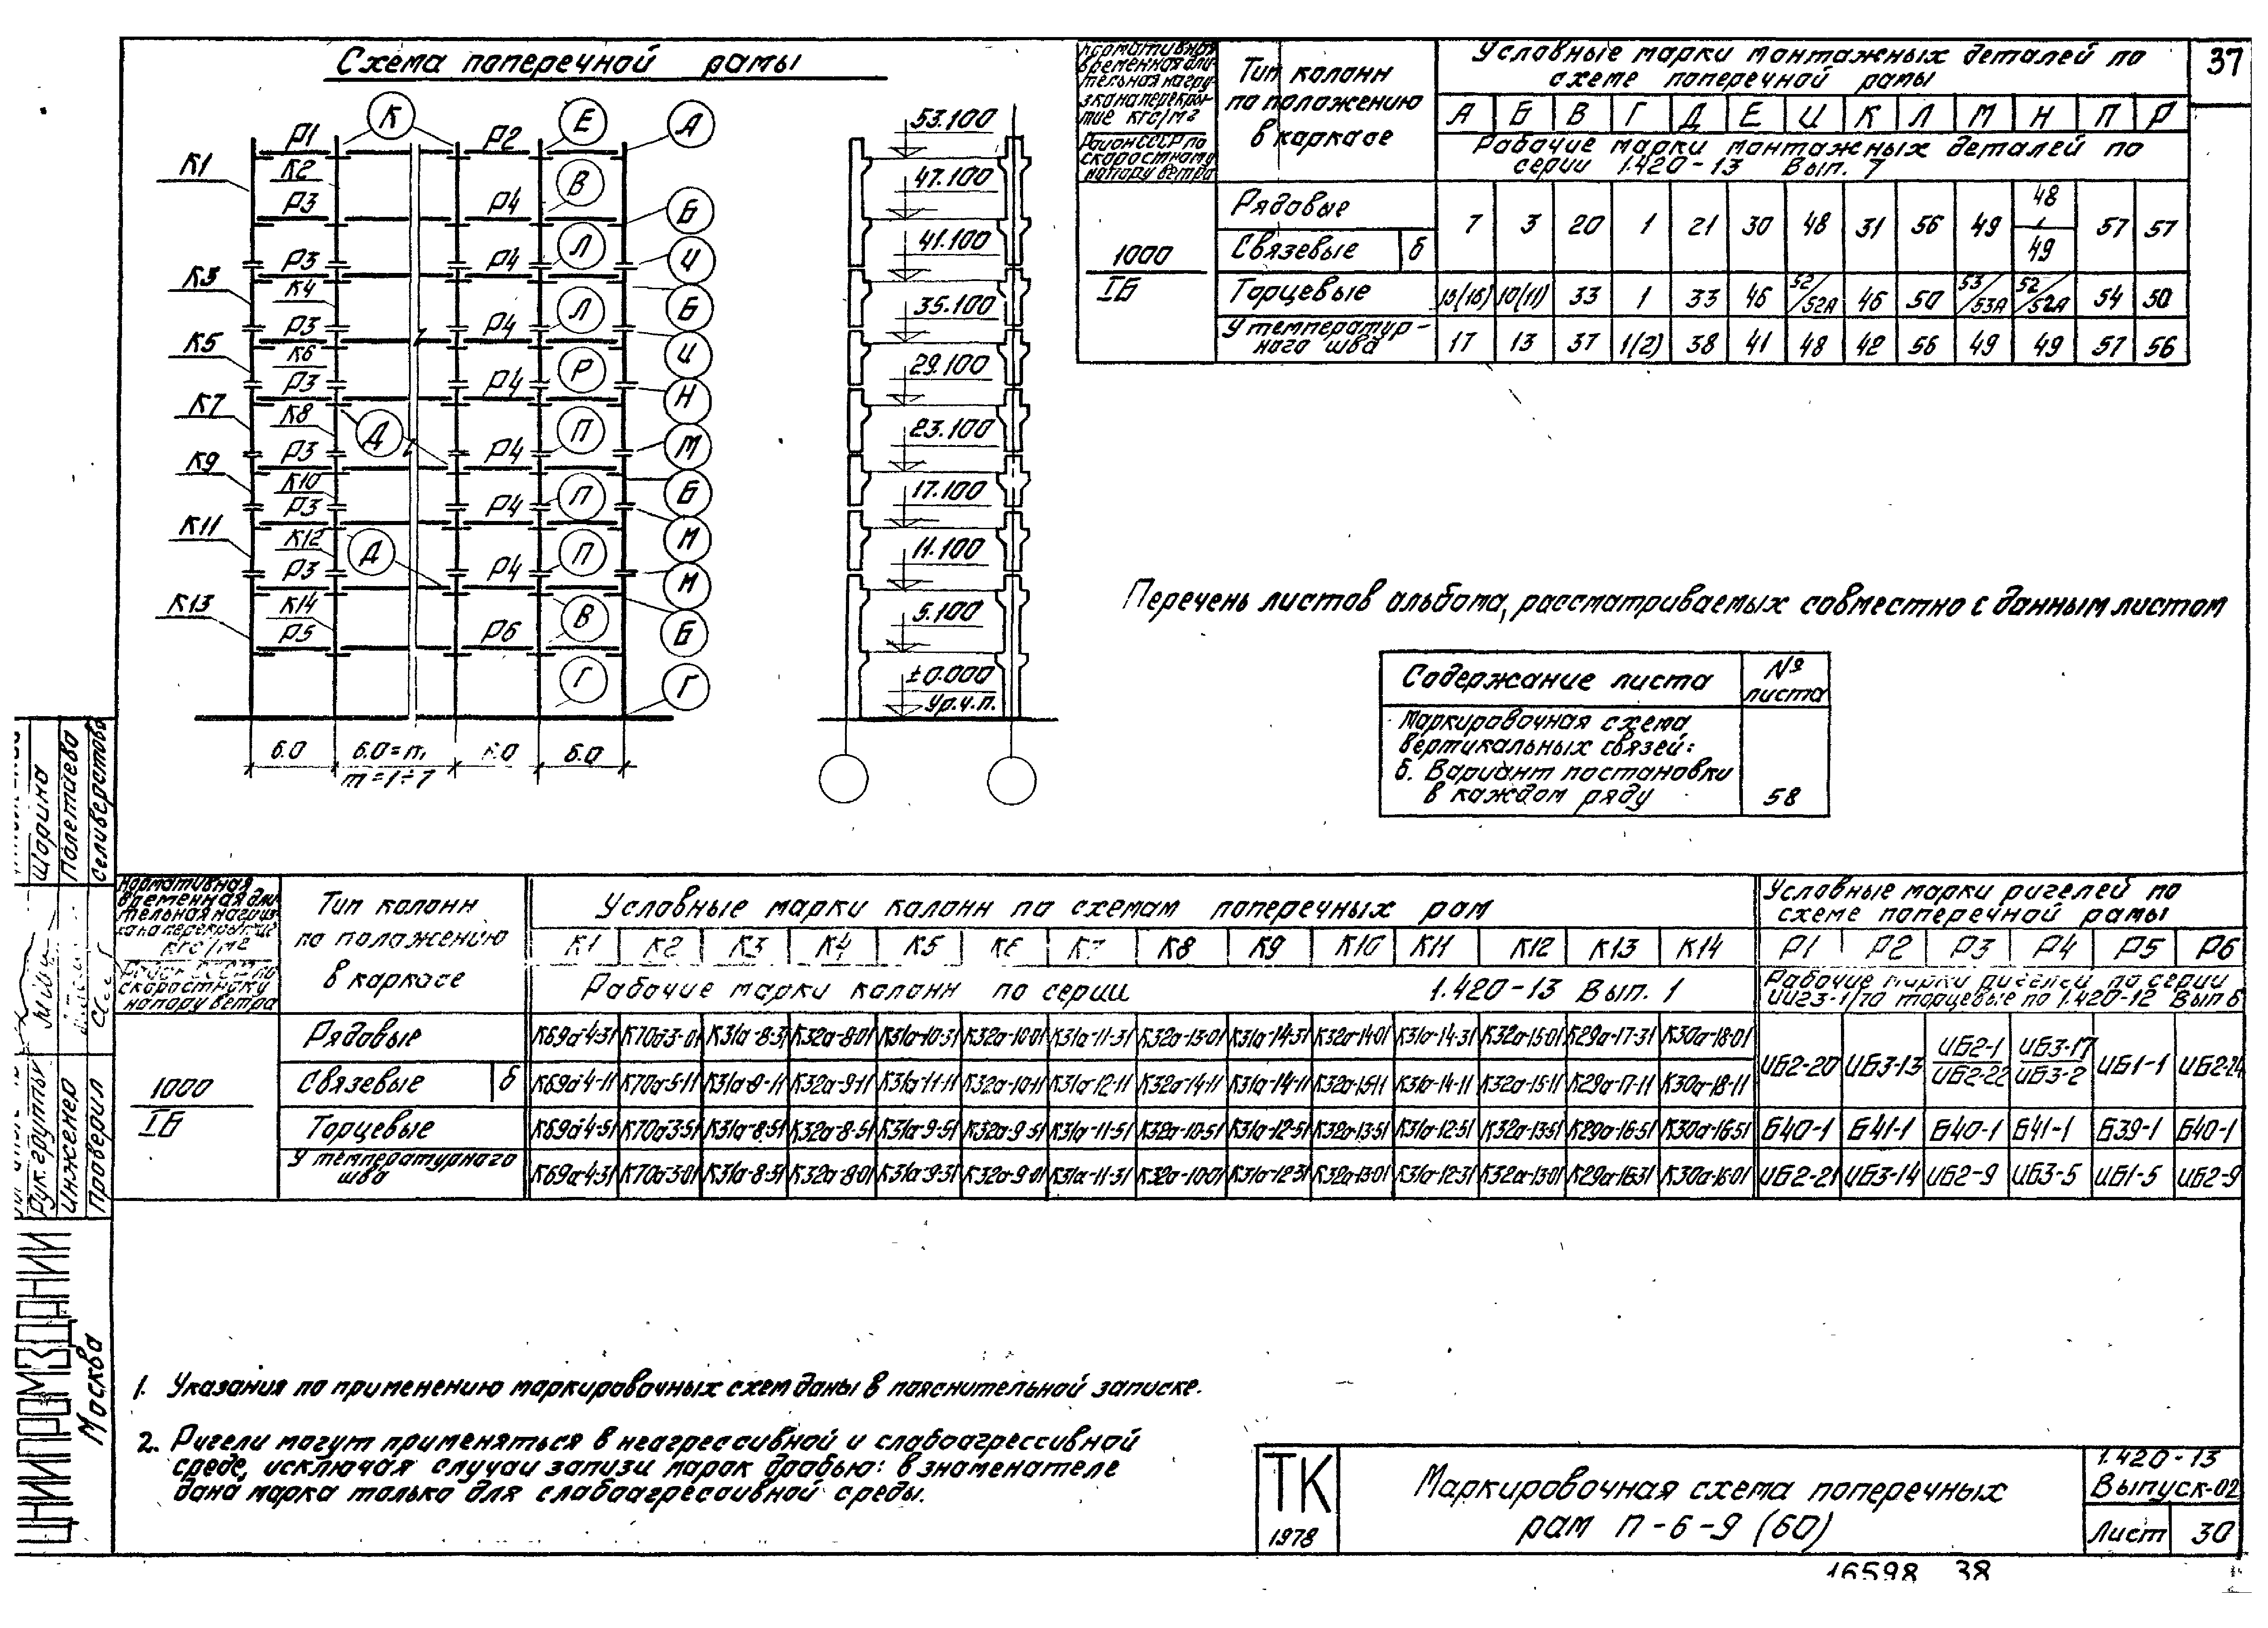 37
Схема поперечной рамы
К Е А
Р1 Р2
К1 К2 В
Р3 Р4 Б
Л И
Р3 Р4
К3 К4 Б
Л
Р3 Р4
К5 К6 И
Р
Р3 Р4 Н
К7 К8
Д П М
Р3 Р4
К9 К10 П Б
Р3 Р4
К11 К12 Д П М
Р3 Р4 М
К13 К14 В
Р5 Р6 Б
Г Г
6.0 6.0=m 6.0 6.0
m=1÷7
53.100
47.100
41.100
35.100
29.100
23.100
17.100
11.100
5.100
±0.000
Ур.ч.п.
Нормативная временная длительная нагрузка на перекрытие кгс/м2
Район СССР по скоростному напору ветра
Тип колонн по положению в каркасе
Условные марки монтажных деталей по схеме поперечной рамы
А Б В Г Д Е И К Л М Н П Р
Рабочие марки монтажных деталей по серии 1.420-13 Вып. 7
1000
IБ
Рядовые
Связевые б
7 3 20 1 21 30 48 31 56 49 48/49 57 57
Торцевые 15(16) 10(11) 33 1 33 46 52/52А 46 50 53/53А 52/52А 54 50
У температурного шва 17 13 37 1(2) 38 41 48 42 56 49 49 57 56
Перечень листов альбома, рассматриваемых совместно с данным листом
Содержание листа № листа
Маркировочная схема
вертикальных связей:
б. Вариант постановки
в каждом ряду 58
Нормативная временная длительная нагрузка на перекрытие кгс/м2
Район СССР по скоростному напору ветра
Тип колонн по положению в каркасе
Условные марки колонн по схемам поперечных рам
К1 К2 К3 К4 К5 К6 К7 К8 К9 К10 К11 К12 К13 К14
Рабочие марки колонн по серии 1.420-13 Вып. 1
Условные марки ригелей по схеме поперечной рамы
Р1 Р2 Р3 Р4 Р5 Р6
Рабочие марки ригелей по серии ИИ23-1/70 торцевые по 1.420-12 Вып 6
1000
IБ
Рядовые К69а-4-31 К70а-3-01 К31а-8-31 К32а-8-01 К31а-10-31 К32а-10-01 К31а-11-31 К32а-13-01 К31а-14-31 К32а-14-01 К31а-14-31 К32а-15-01 К29а-17-31 К30а-18-01
Связевые б К69а-4-11 К70а-5-11 К31а-9-11 К32а-9-11 К31а-11-11 К32а-10-11 К31а-12-11 К32а-14-11 К31а-14-11 К32а-15-11 К31а-14-11 К32а-15-11 К29а-17-11 К30а-18-11
ИБ2-20 ИБ3-13 ИБ2-1/ИБ2-22 ИБ3-17/ИБ3-2 ИБ1-1 ИБ2-24
Торцевые К69а-4-51 К70а-3-51 К31а-8-51 К32а-8-51 К31а-9-51 К32а-9-51 К31а-11-51 К32а-10-51 К31а-12-51 К32а-13-51 К31а-12-51 К32а-13-51 К29а-16-51 К30а-16-51 Б40-1 Б41-1 Б40-1 Б41-1 Б39-1 Б40-1
У температурного шва К69а-4-31 К70а-3-01 К31а-8-31 К32а-8-01 К31а-9-31 К32а-9-01 К31а-11-31 К32а-10-01 К31а-12-31 К32а-13-01 К31а-12-31 К32а-13-01 К29а-16-31 К30а-16-01 ИБ2-21 ИБ3-14 ИБ2-9 ИБ3-5 ИБ1-5 ИБ2-9
1. Указания по применению маркировочных схем даны в пояснительной записке.
2. Ригели могут применяться в неагрессивной и слабоагрессивной
среде, исключая случаи записи марок дробью: в знаменателе
дана марка только для слабоагрессивной среды.
Рук. группы Шорина
Инженер Полетаева
Проверил Селиверстова
ЦНИИПРОМЗДАНИЙ
Москва
ТК
1978
Маркировочная схема поперечных
рам П-6-9 (60)
1.420-13
Выпуск-02
Лист 30
16598 38